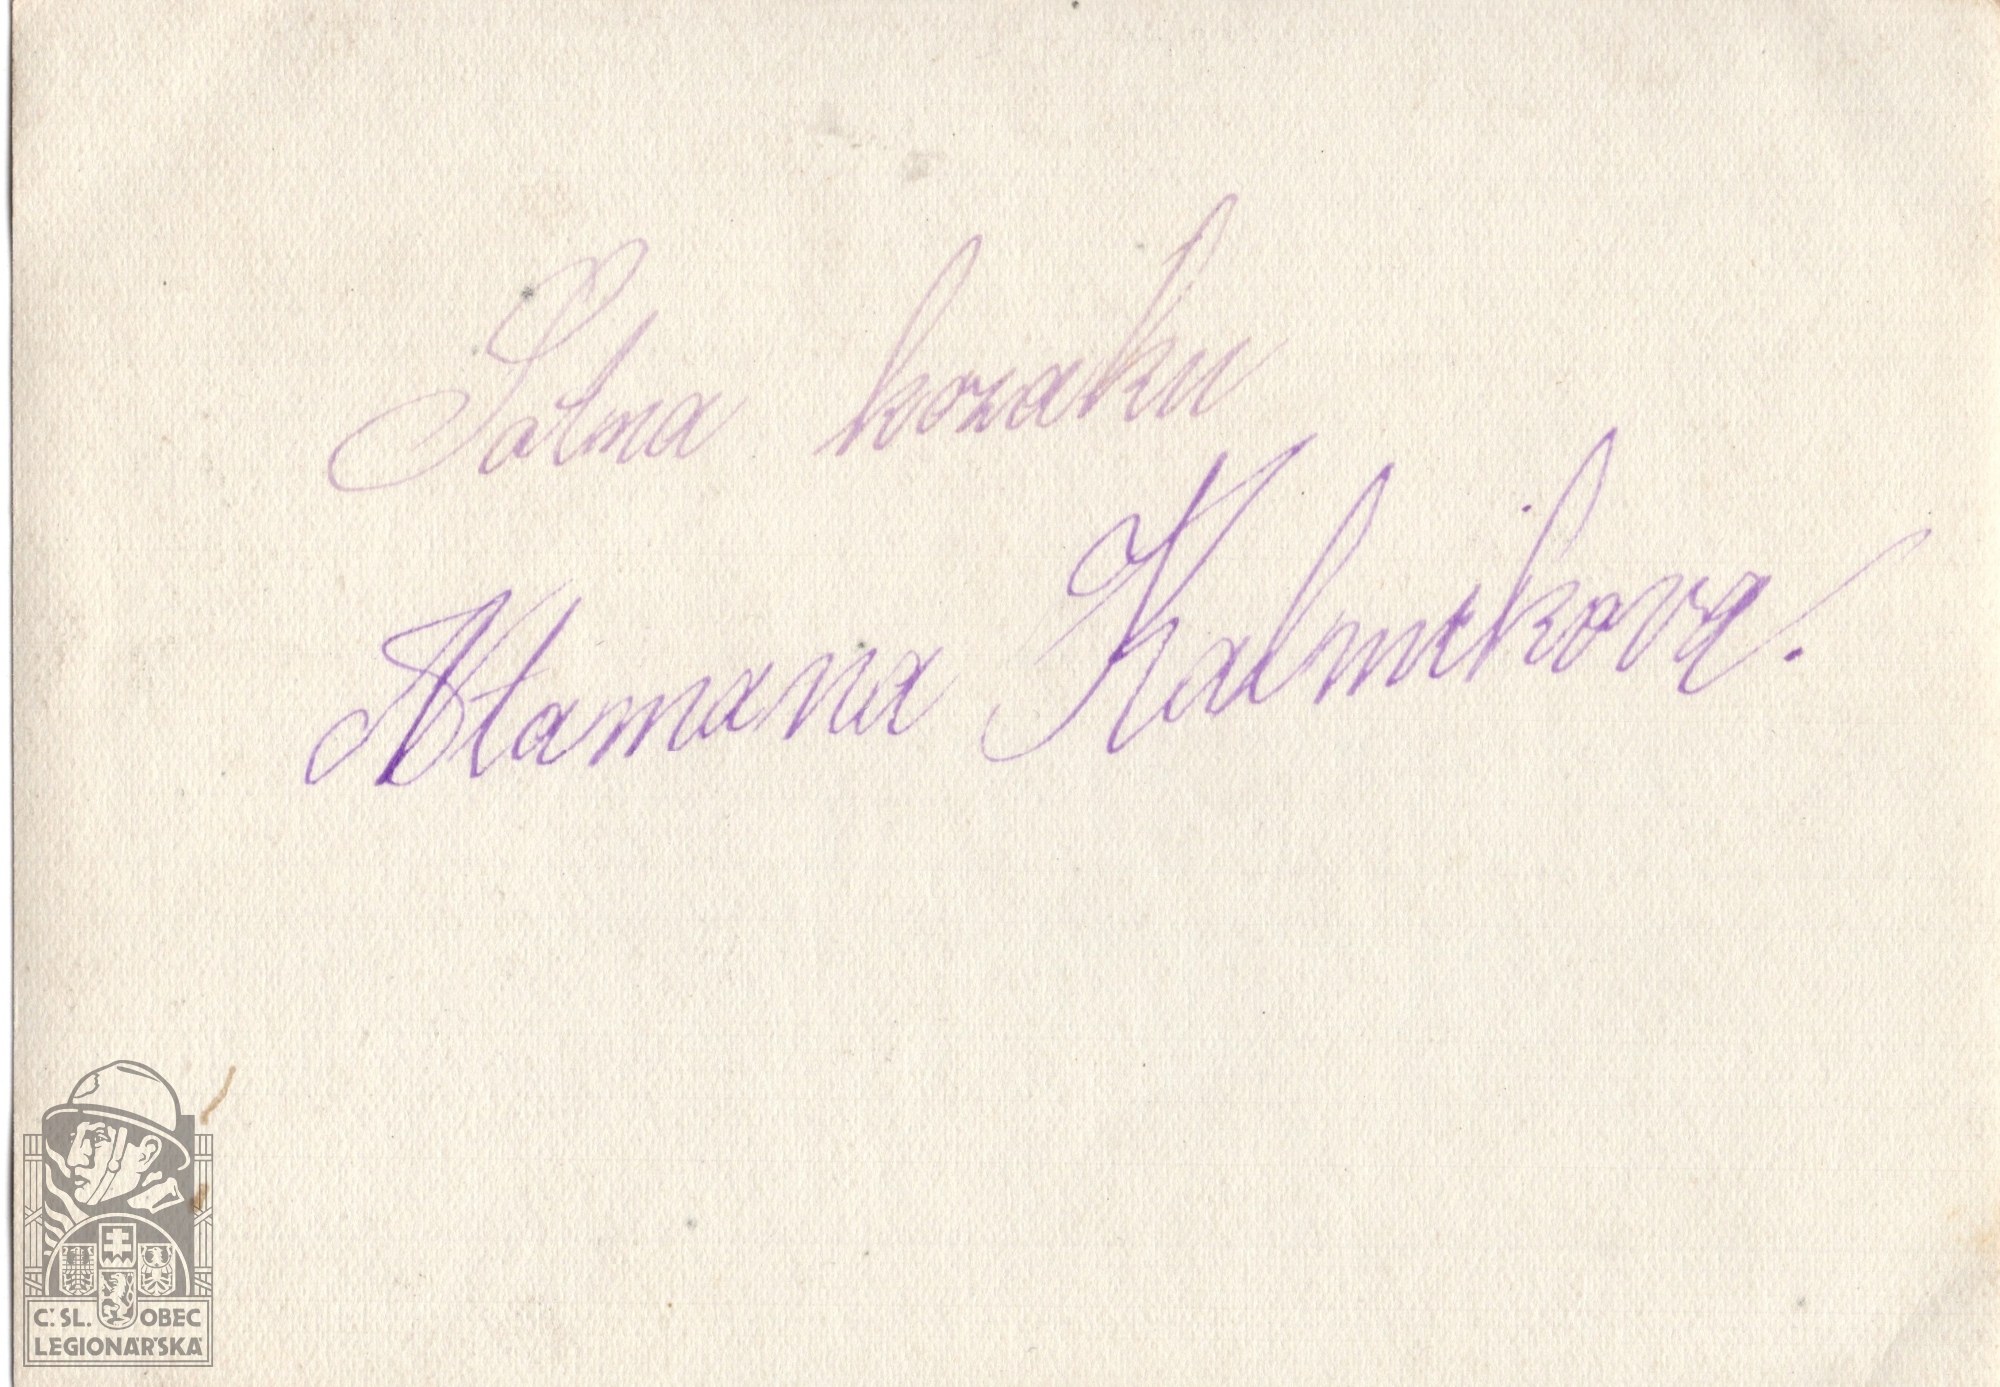 Sotna kozaku
Atamana Kalmikova.
Č.SL. OBEC
LEGIONÁŘSKÁ